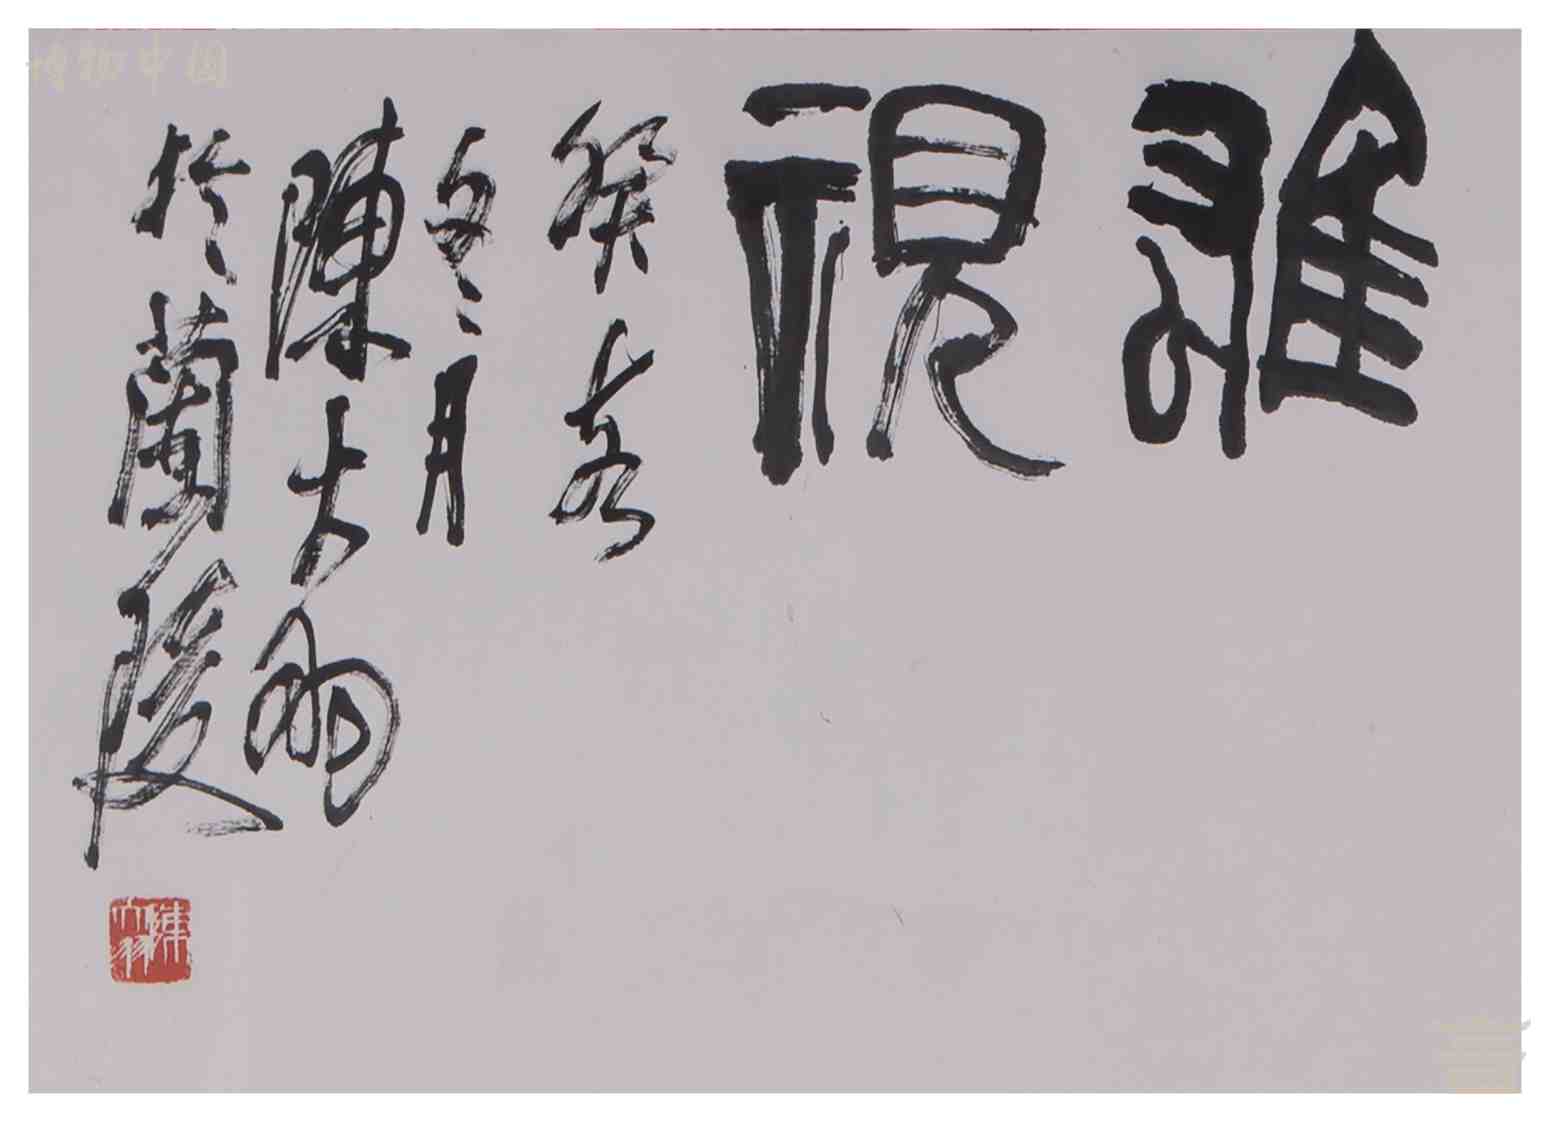 雄視
癸亥
冬月
陳大羽
於蘭陵
陳大羽
博物中国